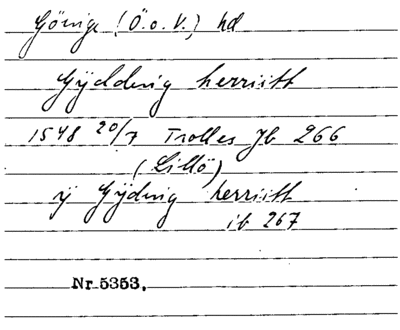 Gönge (Ö.o.V.) hd
Gÿdding herritt
1548 20/7 Trolles Jb 266
(Lillö)
ÿ Gÿding herritt
ib 267
Nr 5353.